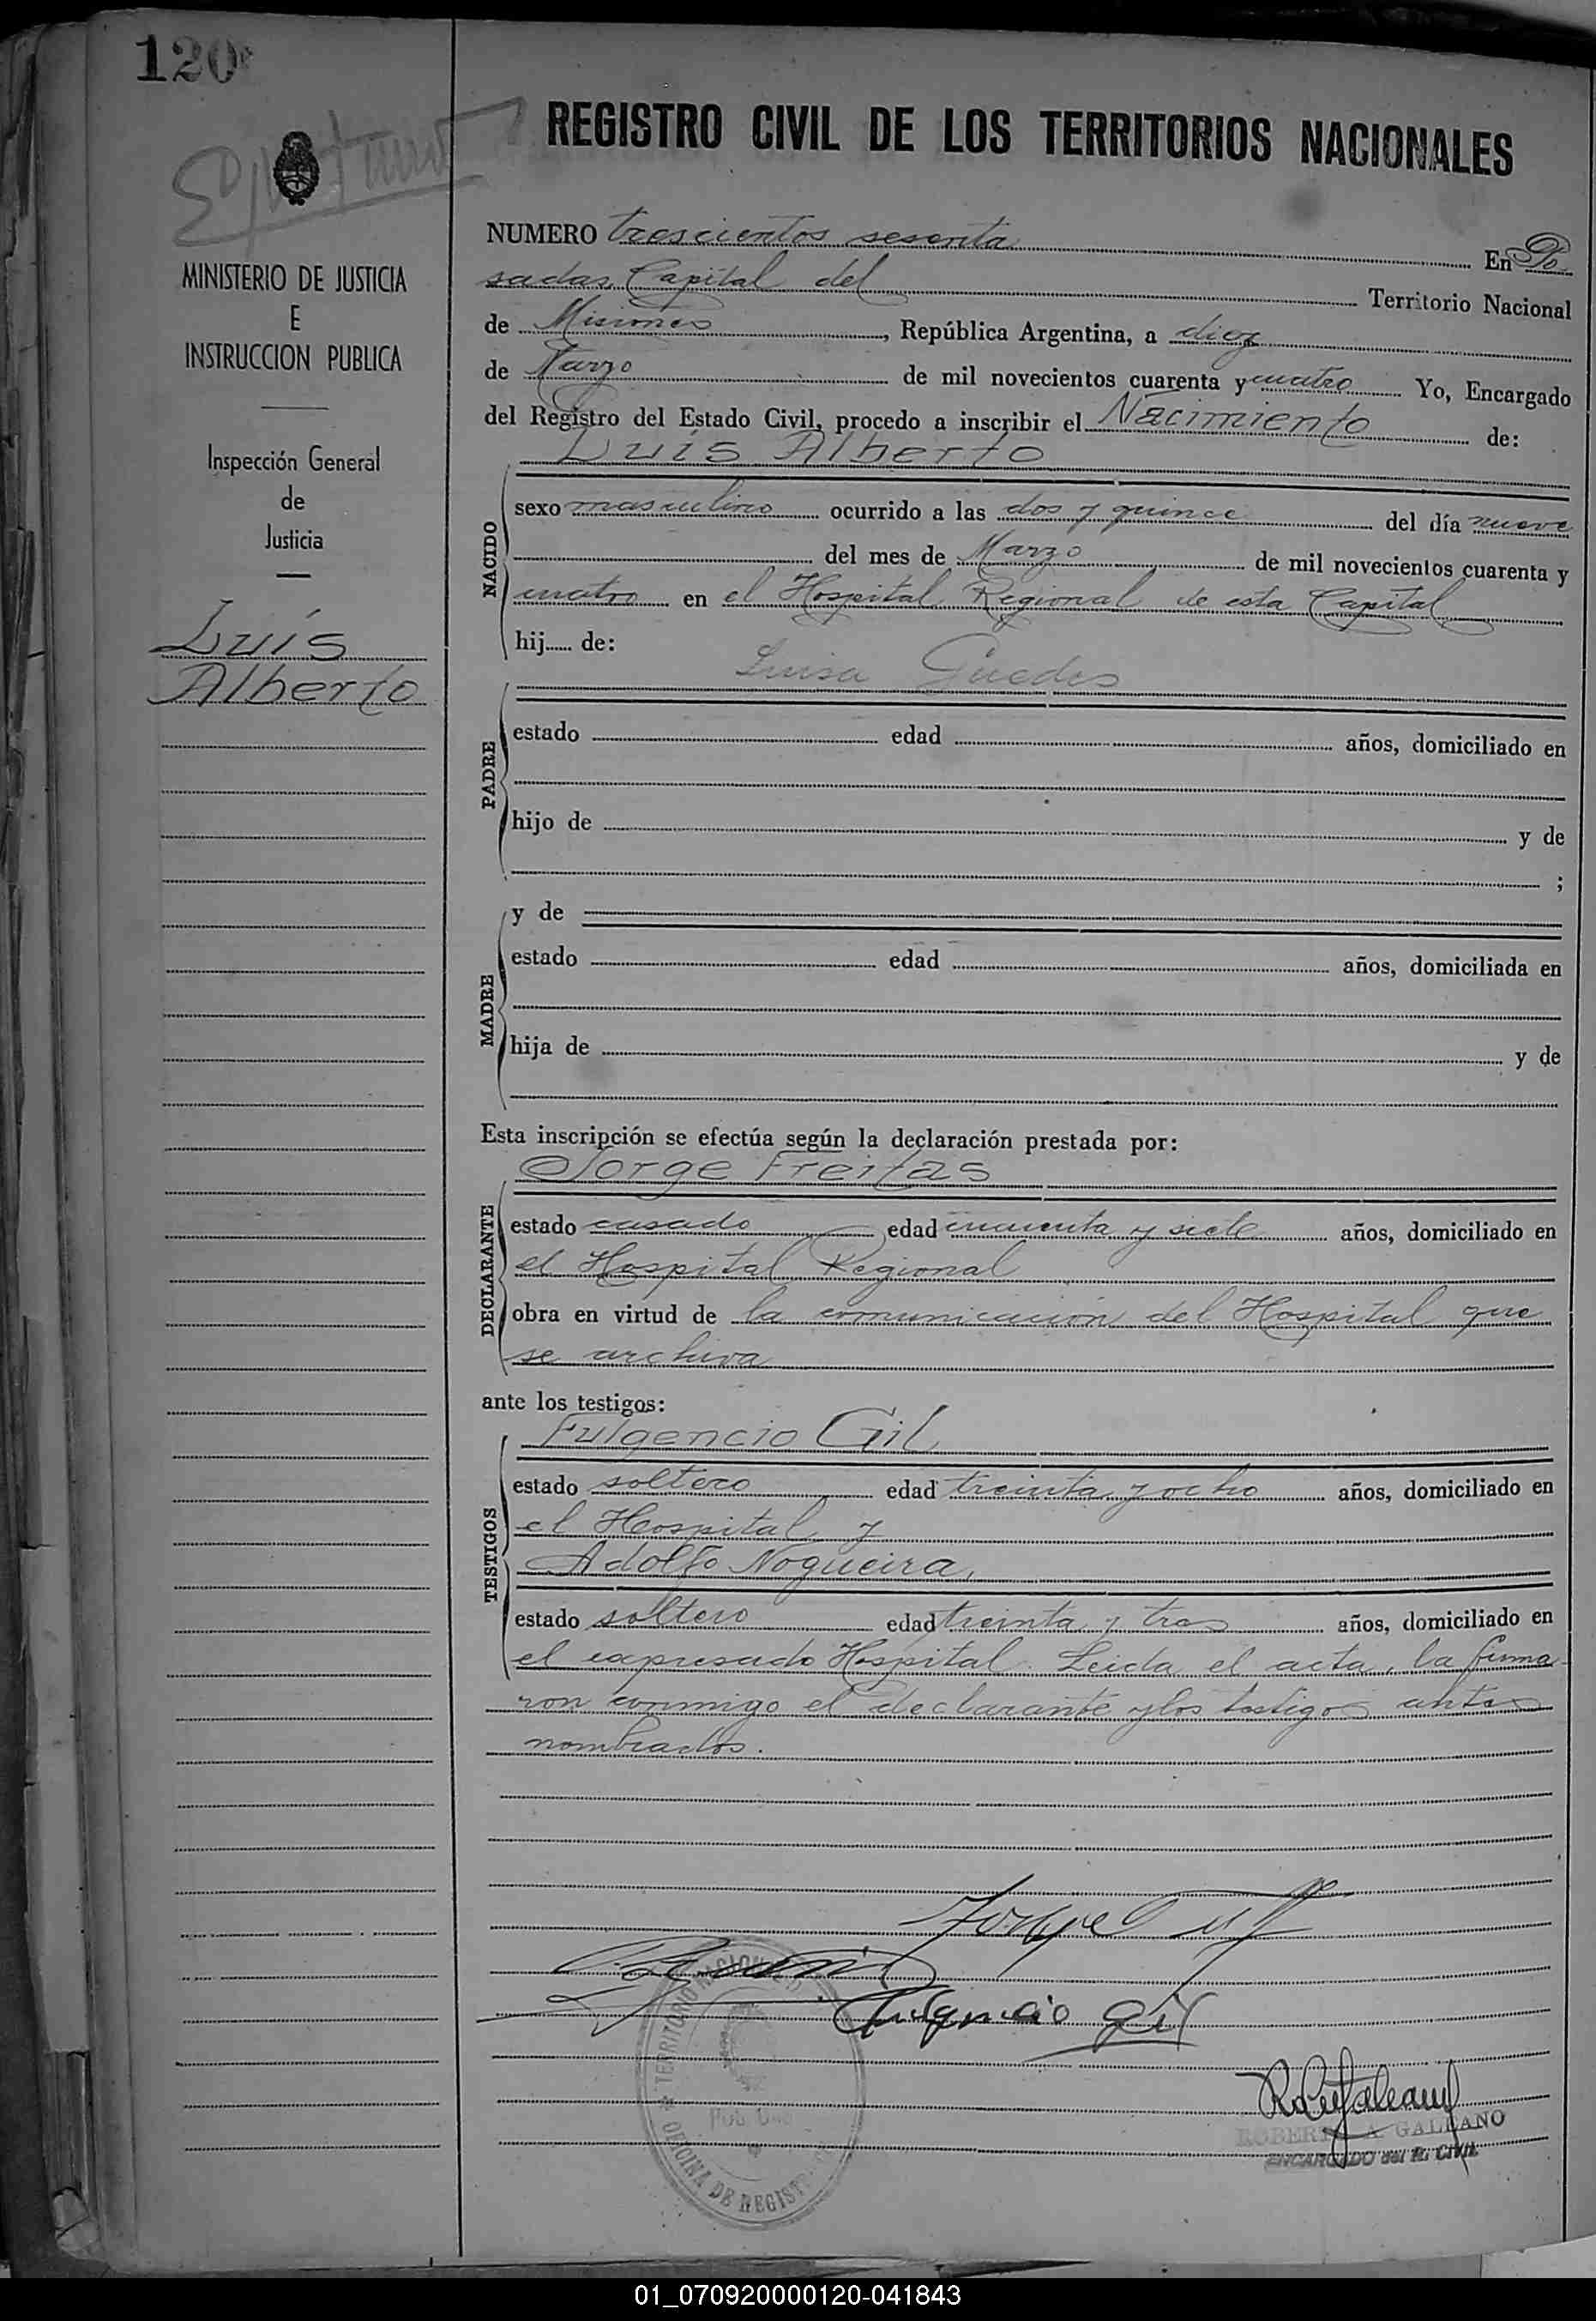 120
REGISTRO CIVIL DE LOS TERRITORIOS NACIONALES
MINISTERIO DE JUSTICIA
E
INSTRUCCION PUBLICA
Inspección General
de
Justicia
Luis
Alberto
NUMERO trescientos sesenta En Po
sadas, Capital del Territorio Nacional
de Misiones, República Argentina, a diez
de Marzo de mil novecientos cuarenta y cuatro Yo, Encargado
del Registro del Estado Civil, procedo a inscribir el Nacimiento de:
Luis Alberto
NACIDO
sexo masculino ocurrido a las dos y quince del día nueve
del mes de Marzo de mil novecientos cuarenta y
cuatro en el Hospital Regional de esta Capital
hij...... de:
Luisa Guedes
PADRE
estado edad años, domiciliado en
hijo de y de
;
MADRE
y de
estado edad años, domiciliada en
hija de y de
Esta inscripción se efectúa según la declaración prestada por:
Jorge Freitas
DECLARANTE
estado casado edad cincuenta y siete años, domiciliado en
el Hospital Regional
obra en virtud de la comunicación del Hospital que
se archiva
ante los testigos:
Fulgencio Gil
TESTIGOS
estado soltero edad treinta y ocho años, domiciliado en
el Hospital y
Adolfo Nogueira,
estado soltero edad treinta y tres años, domiciliado en
el expresado Hospital. Leida el acta, la firma-
ron conmigo el declarante y los testigos antes
nombrados.
Fulgencio Gil
TERRITORIO NACIONAL
OFICINA DE REGIST
ROBERTO A. GALEANO
ENCARGADO del R. CIVIL
01_070920000120-041843